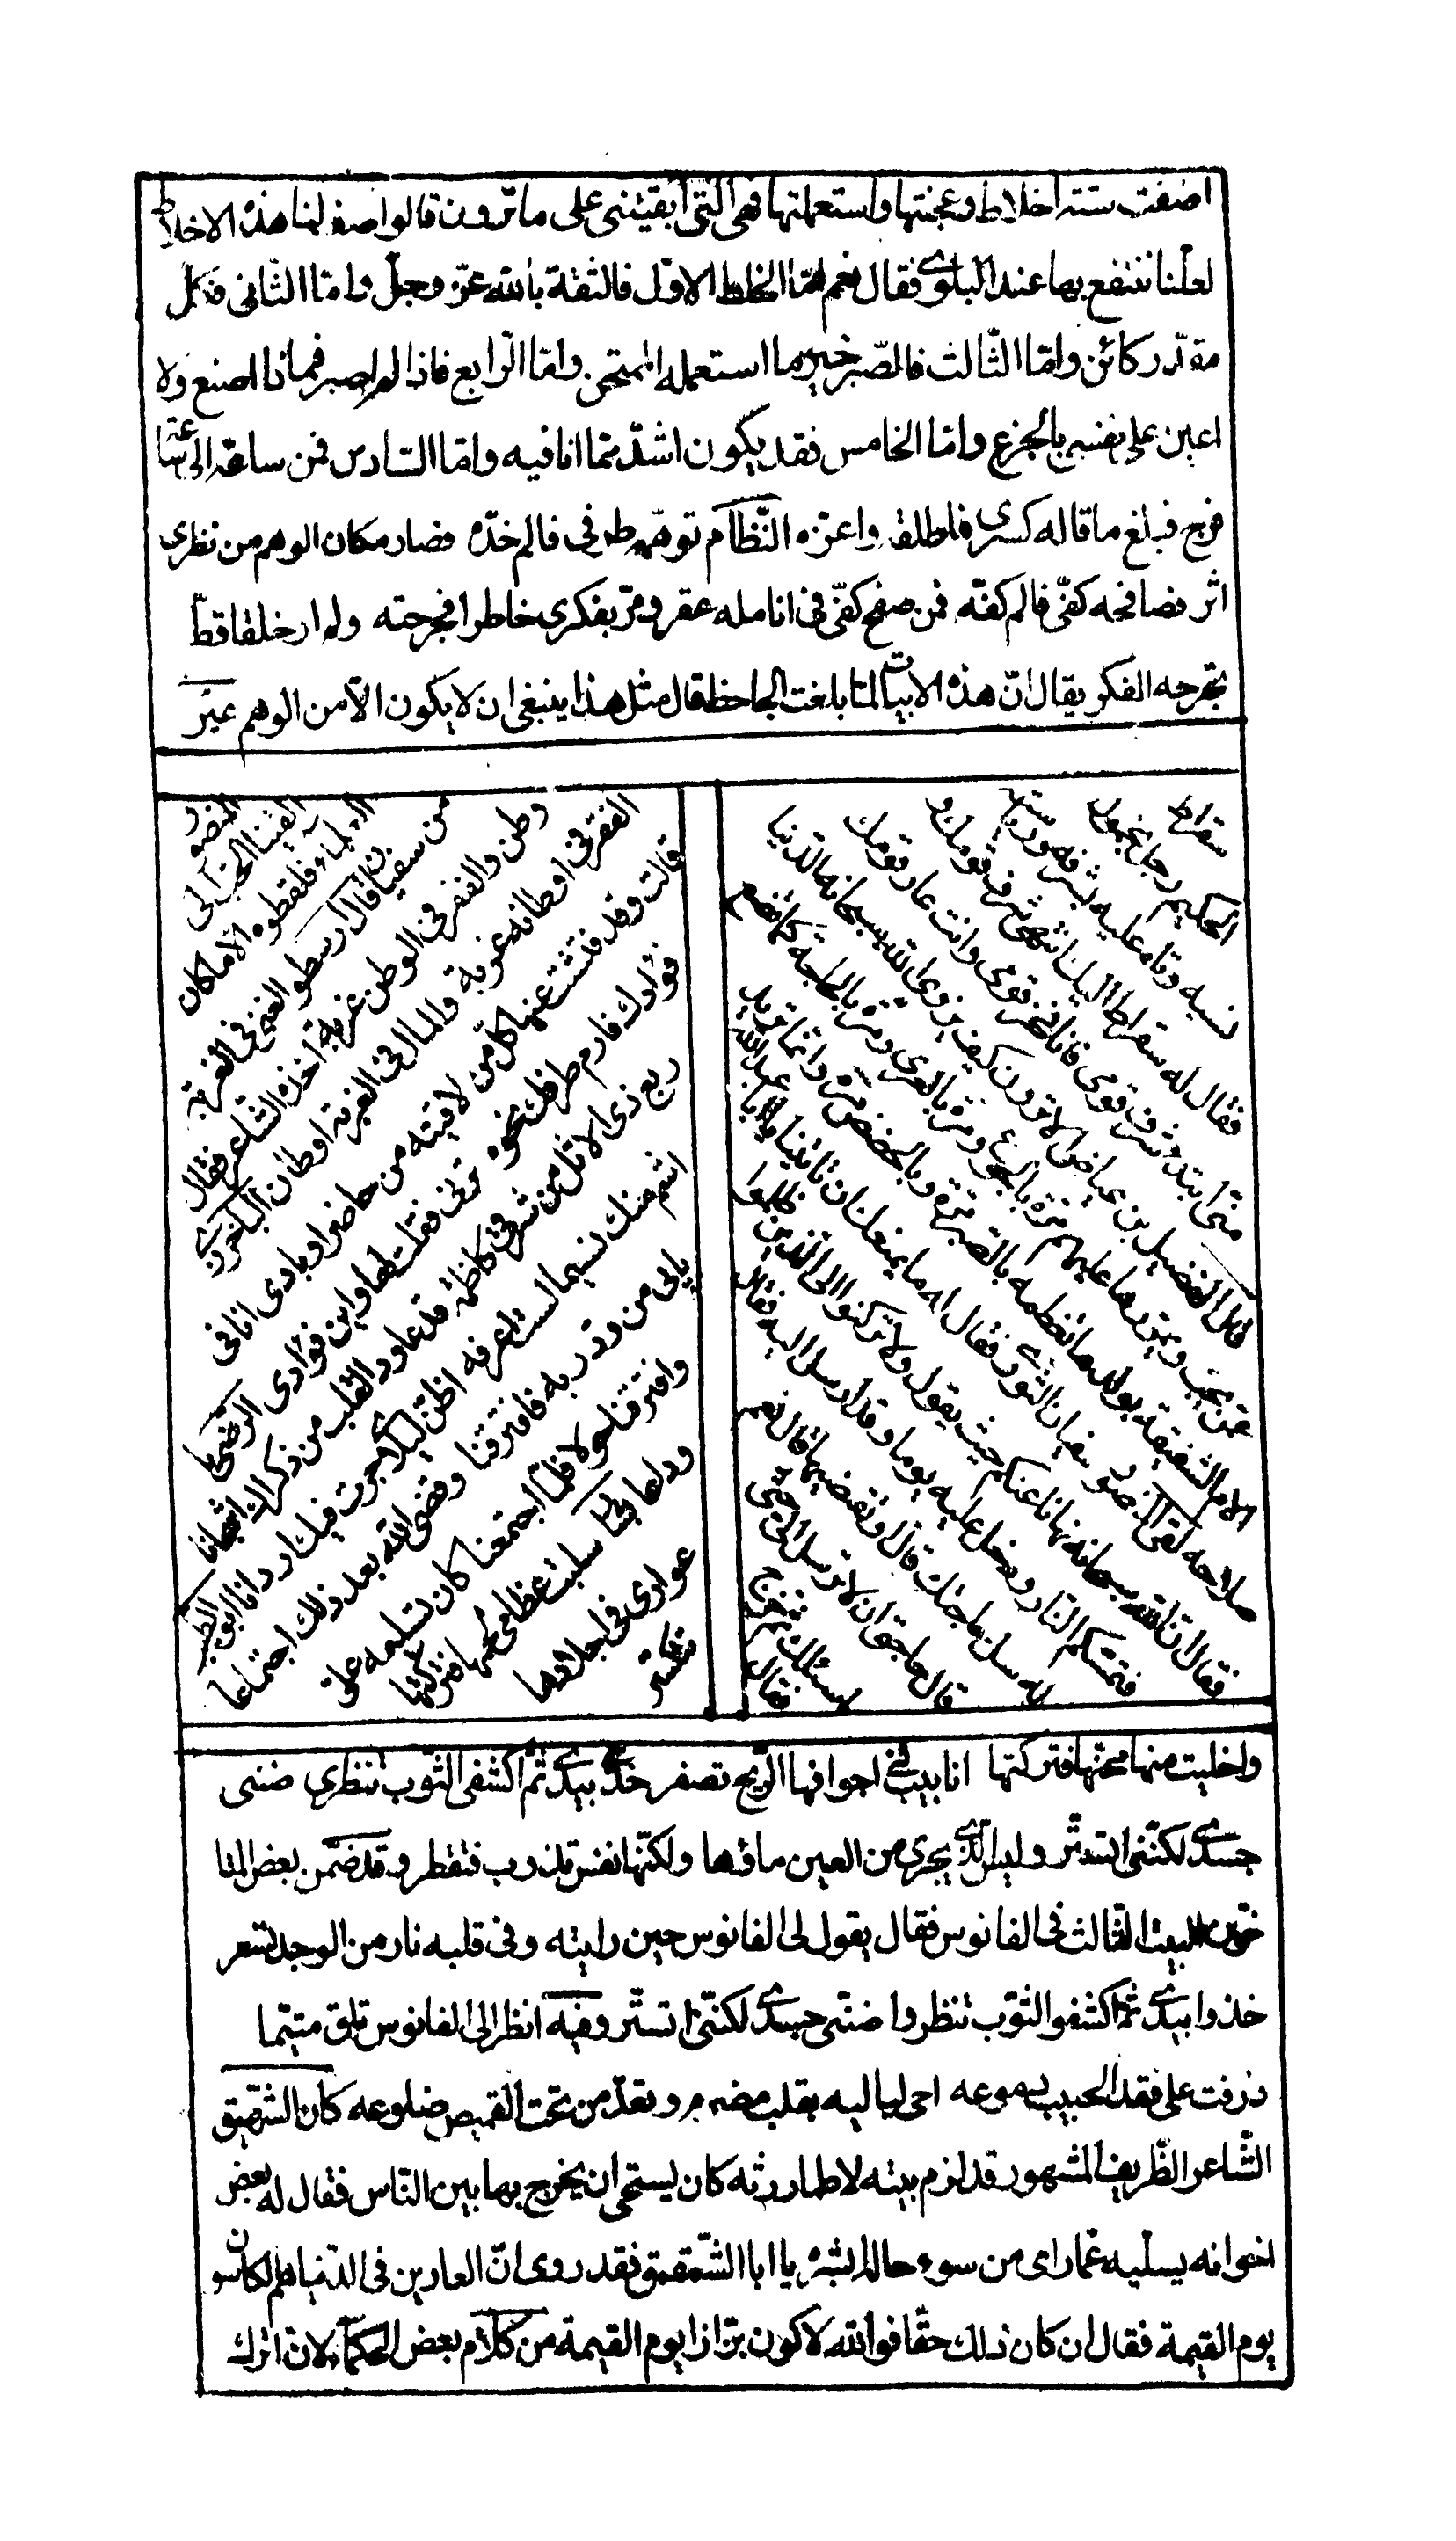 اضفت ستة اخلاط وعجنتها واستعملتها فهى التى ابقيتنى على ما ترون قالوا صف لنا هذه الاخلاط
لعلّنا ننتفع بها عند البلوى فقال نعم امّا الخلط الاوّل فالثقة بالله عزّ وجلّ وامّا الثّانى فكلّ
مقدّر كائن وامّا الثّالث فالصّبر خير ما استعمله الممتحن وامّا الرّابع فاذا لم اصبر فماذا اصنع ولا
اعين على نفسى بالجزع وامّا الخامس فقد يكون اشدّ ممّا انا فيه وامّا السّادس فمن ساعة الى ساعة
فرج فبلغ ما قاله كسرى فاطلقه واعزّه النّظام توهّمه طرفى فالم خدّه فصار مكان الوهم من نظرى
اثر فصافحه كفّى فالم كفّه فمن صفح كفّى فى انامله عقر ومرّ بفكرى خاطرا فجرحته ولم ار خلقا قطّ
يجرحه الفكر يقال انّ هذه الابيات لمّا بلغت الجاحظ قال مثل هذا ينبغى ان لا يكون الّا من الوهم عيّر
سقراط
الحكيم رجل بخمول
نسبه وتاه عليه بشرفه ورياسته
فقال له سقراط اليك انتهى شرف قومك و
منّى ابتدء شرف قومى فانا فخر قومى وانت عار قومك
قال الفضيل بن عياض الا ترون كيف يزوى الله سبحانه الدّنيا
عمّن يحبّ ويمرّرها عليهم مرّة بالجوع ومرّة بالعرى ومرّة بالحاجة كما تصنع
الام الشفيقة بولدها تفطمه بالصبر مرّة وبالحضض مرّة وانّما تريد
صلاحه لقى المنصور سفيان الثورى فقال له ما يمنعك ان تاتينا يا ابا عبد الله
فقال ان الله سبحانه نهانا عنكم حيث يقول ولا تركنوا الى الذين ظلموا
فتمسّكم النّار ودخل عليه يوما وقد ارسل اليه فقال
له سل حاجتك قال او تقضيها قال نعم
قال حاجتى ان لا ترسل الىّ حتى
اسئلك ثم خرج
فقال
المنصور
القينا الحبّ الى
العلماء فلقطوه الا ما كان
من سفيان قال ارسطو الغنى فى الغربة
وطن والفقر فى الوطن غربة اخذه الشّاعر فقال
الفقر فى اوطانه غربة والمال فى الغربة اوطان الباخرزى
قالت وقد فتّشت عنها كلّ من لاقيته من حاضر او بادى انا فى
فؤادك فارم طرفك نحوه ترنى فقلت لها واين فؤادى الرّضى يا
ربع ذى الاثل من شرقى كاظمة قد عاود القلب من ذكراك اشجانا
اشم منك نسيما لست اعرفه اظنّ ليلى جرت فيك اردانا ابو الطيب
بابى من وددته فافترقنا وقضى الله بعد ذلك اجتماعا
وافترقنا حولا فلمّا اجتمعنا كان تسليمه علىّ
وداعا سلبت عظامى لحمها فتركتها
عوارى فى اجلادها
تتكسّر
واخليت منها مخّها فتركتها انابيب فى اجوافها الرّيح تصفر خذى بيدى ثمّ اكشفى الثّوب تنظرى ضنى
جسدى لكنّنى اتستّر وليس الّذى يجرى من العين ماؤها ولكنّها نفس تذوب فتقطر وقد ضمّن بعض المتا
خرين البيت الثّالث فى الفانوس فقال يقول لى الفانوس حين رايته وفى قلبه نار من الوجد تسعر
خذوا بيدى ثمّ اكشفوا الثّوب تنظروا ضنى جسدى لكنّنى اتستّر وفيه انظر الى الفانوس تلق متيّما
ذرفت على فقد الحبيب دموعه احى لياليه بقلب مضرم وتعدّ من تحت القميص ضلوعه كان الشّمقمق
الشّاعر الظّريف المشهور قد لزم بيته لاطمار رثّه كان يستحى ان يخرج بها بين النّاس فقال له بعض
اخوانه يسلّيه عمّا راى من سوء حاله ابشر يا ابا الشّمقمق فقد روى انّ العارين فى الدّنيا هم الكاسون
يوم القيمة فقال ان كان ذلك حقّا فوالله لاكون بزّازا يوم القيمة من كلام بعض الحكماء لان اترك